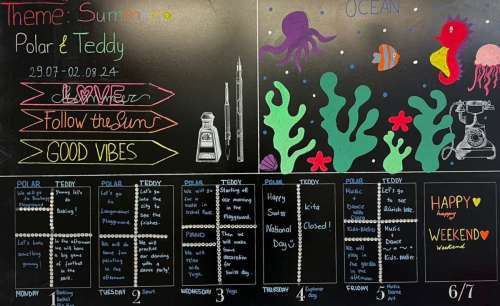 Theme: Summer
Polar & Teddy
29.07-02.08.24
LOVE
Summer
Follow the Sun
GOOD VIBES
OCEAN
POLAR TEDDY
We will go to
Playground
Baking!
Let's bake something yummy!
In the afternoon we will have a big game of football in the park.
MONDAY 1
Baking
POLAR TEDDY
Let's go to
Playground
Let's go to the city to See the fishes.
We will do some fun painting in the afternoon
We will practice our dancing with a dance party!
TUESDAY 2 Sport
POLAR TEDDY
We will go for a walk in
forest
Starting all our morning in the Playground.
PIANO
We will
with Yoga.
Then we will make decoration for Swiss day.
WEDNESDAY 3 Yoga
POLAR TEDDY
Happy Swiss National Day
Kita Closed!
THURSDAY 4 Explorer day
POLAR TEDDY
Music + Dance with
Let's go to see
lake.
Kids-Atelier
We will play in the garden in the afternoon
Music + Dance
Kids-Atelier
FRIDAY 5 Music
Dance
Art
HAPPY
happy
WEEKEND
Weekend
6/7